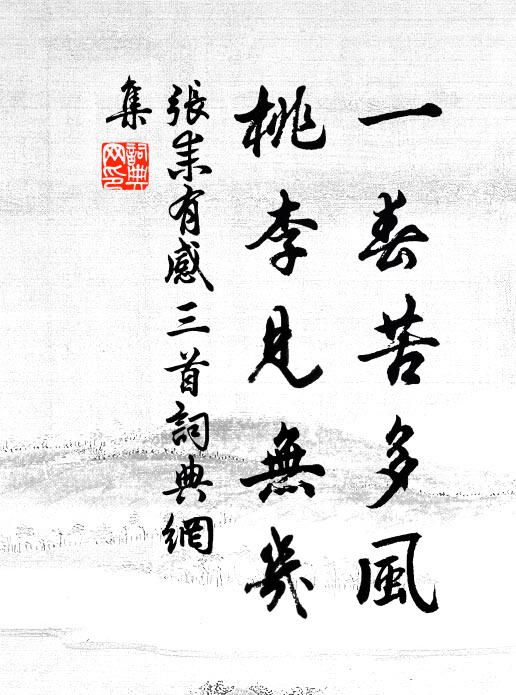 一春苦多風
桃李見無幾
張耒有感三首詞典網
集
詞典網印